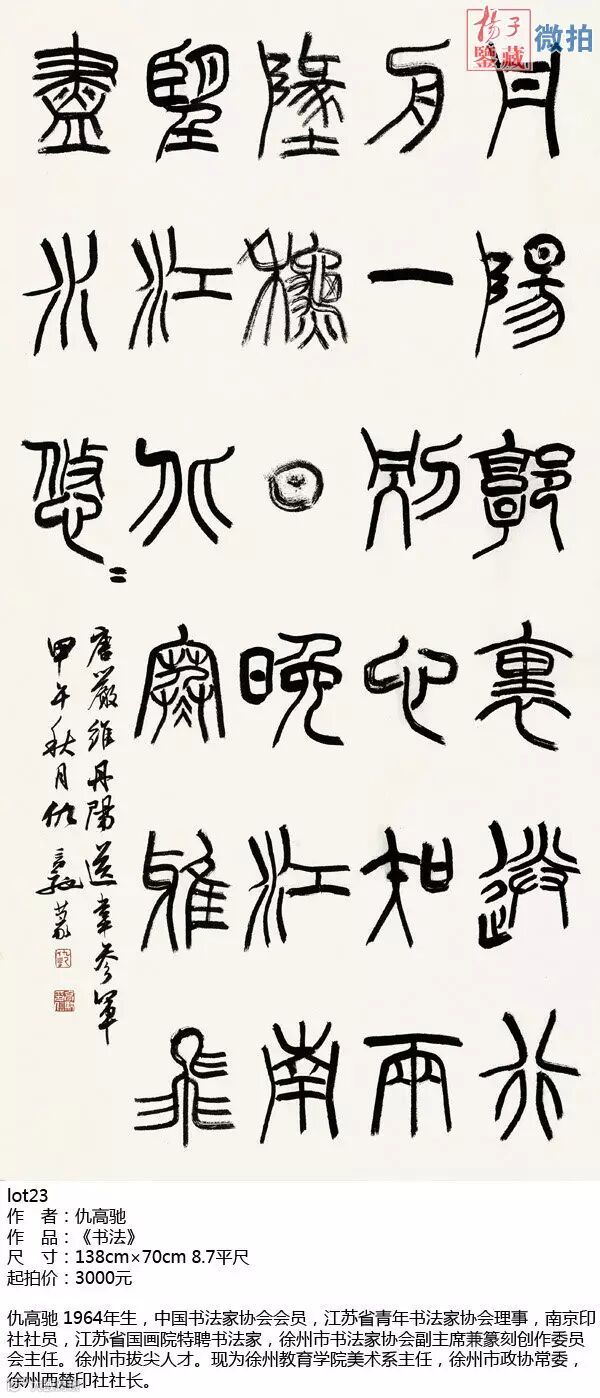 楊子鑒藏
微拍
丹陽郭裏送行
舟一别心知兩
墬龝日晚江南
望江北寒雅飛
盡水悠=
唐嚴維丹陽送韋参軍
甲午秋月仇高馳篆
lot23
作 者：仇高驰
作 品：《书法》
尺 寸：138cm×70cm 8.7平尺
起拍价：3000元
仇高驰 1964年生，中国书法家协会会员，江苏省青年书法家协会理事，南京印
社社员，江苏省国画院特聘书法家，徐州市书法家协会副主席兼篆刻创作委员
会主任。徐州市拔尖人才。现为徐州教育学院美术系主任，徐州市政协常委，
徐州西楚印社社长。